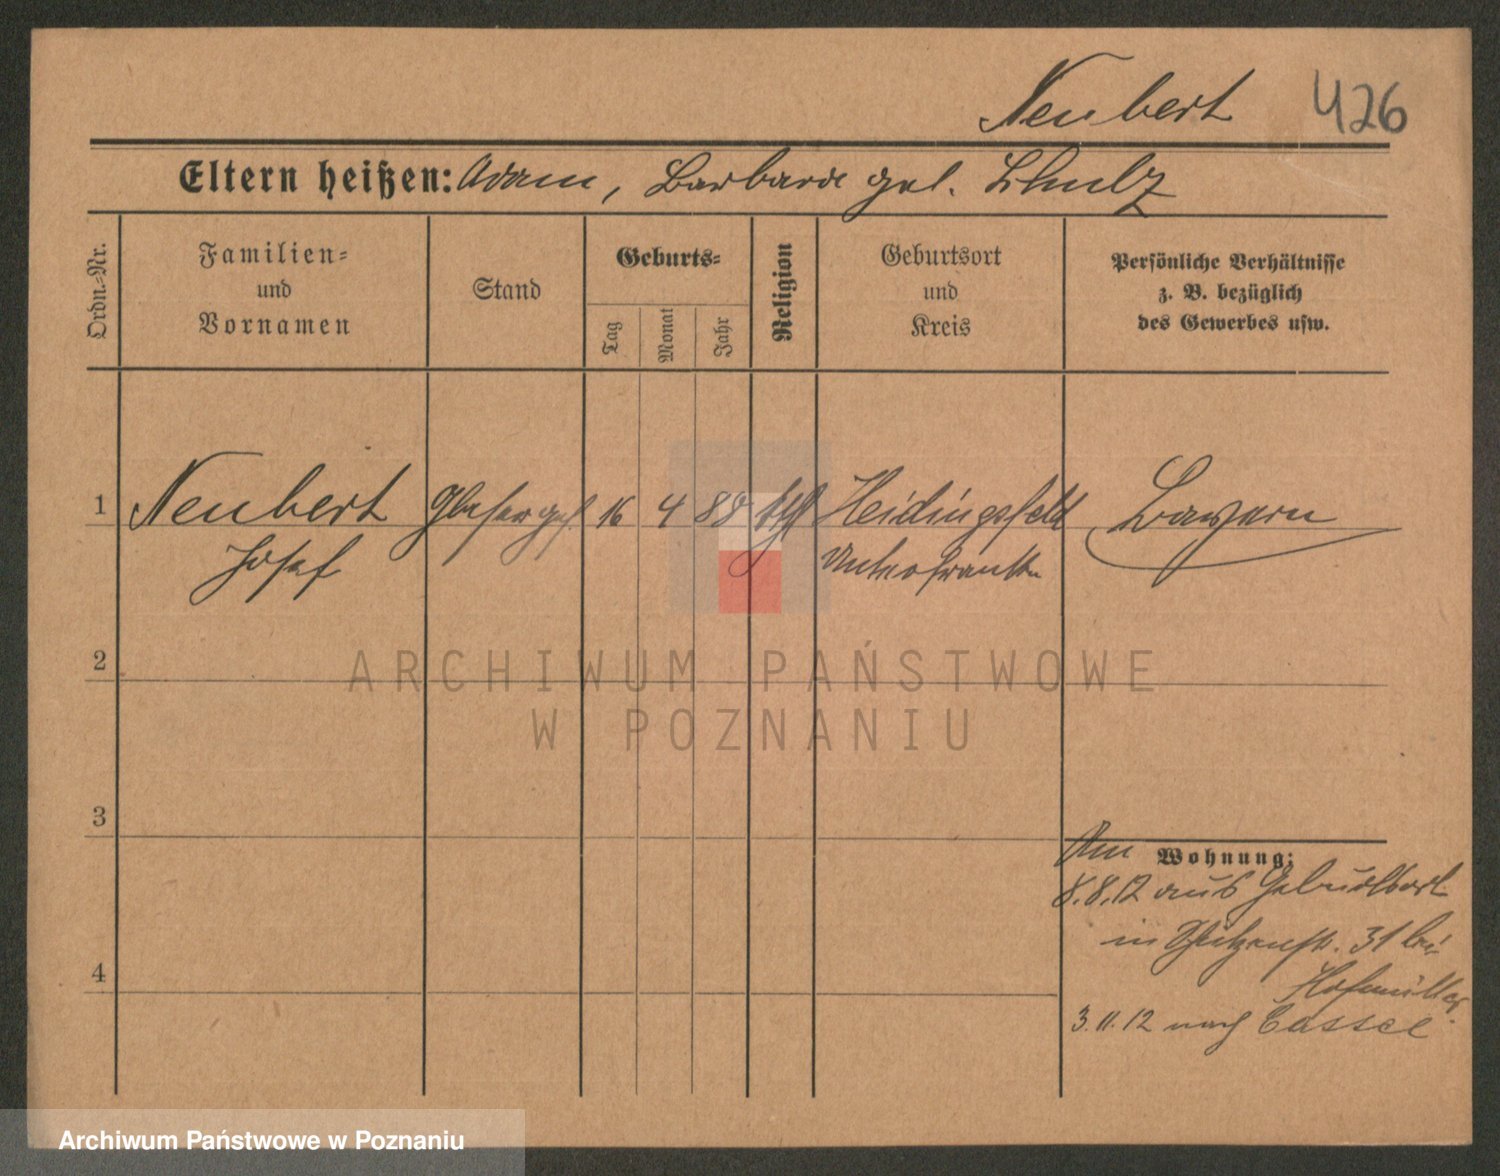 Neubert 426
Eltern heißen: Adam, Barbara geb. Schulz
Ordn.-Nr.
Familien-
und
Vornamen
Stand
Geburts-
Tag
Monat
Jahr
Religion
Geburtsort
und
Kreis
Persönliche Verhältnisse
z. B. bezüglich
des Gewerbes usw.
1 Neubert Glaserges. 16 4 88 kth Heidingsfeld Bayern
Josef Unterfranken
2
3
4
Wohnung:
Am
8.8.12 aus Geburtsort
in Schützenstr. 31 bei
Hofmüller.
3.11.12 nach Cassel
ARCHIWUM PAŃSTWOWE
W POZNANIU
Archiwum Państwowe w Poznaniu